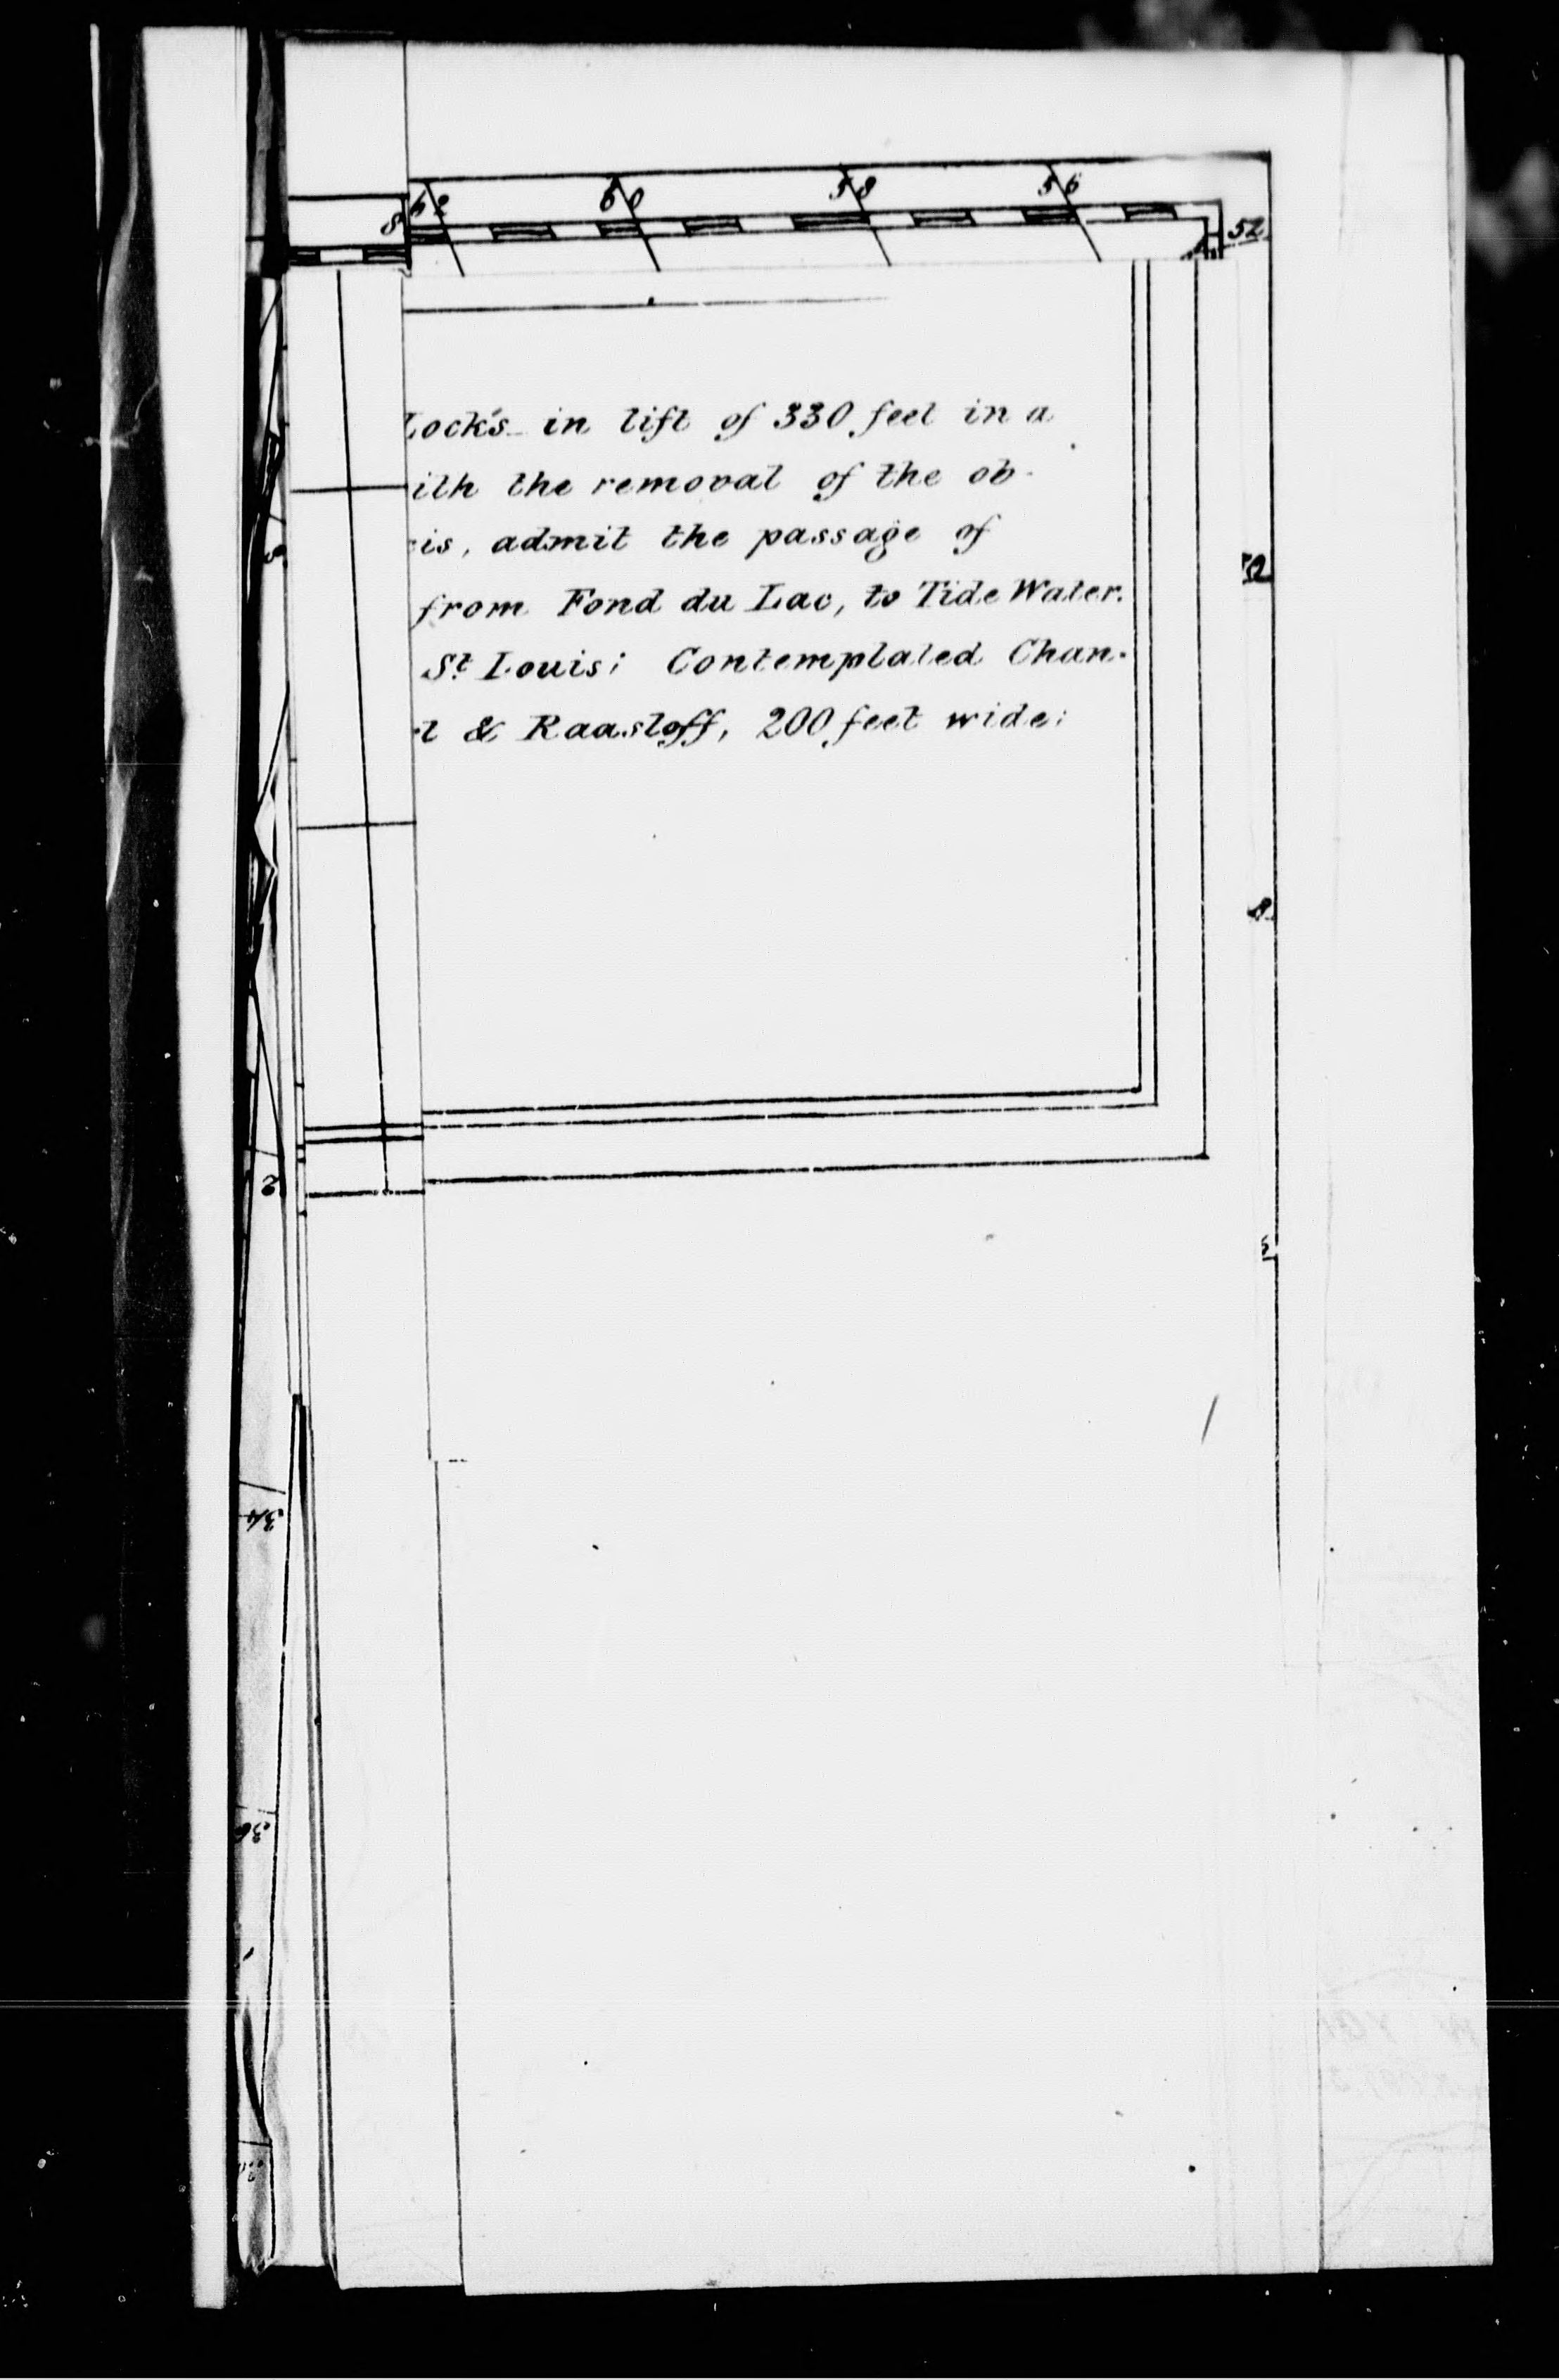 62 60 58 56
8
52
Lock's in lift of 330 feet in a
ith the removal of the ob-
is, admit the passage of
from Fond du Lac, to Tide Water.
St Louis; Contemplated Chan-
t & Raasloff, 200 feet wide;
2
34
36